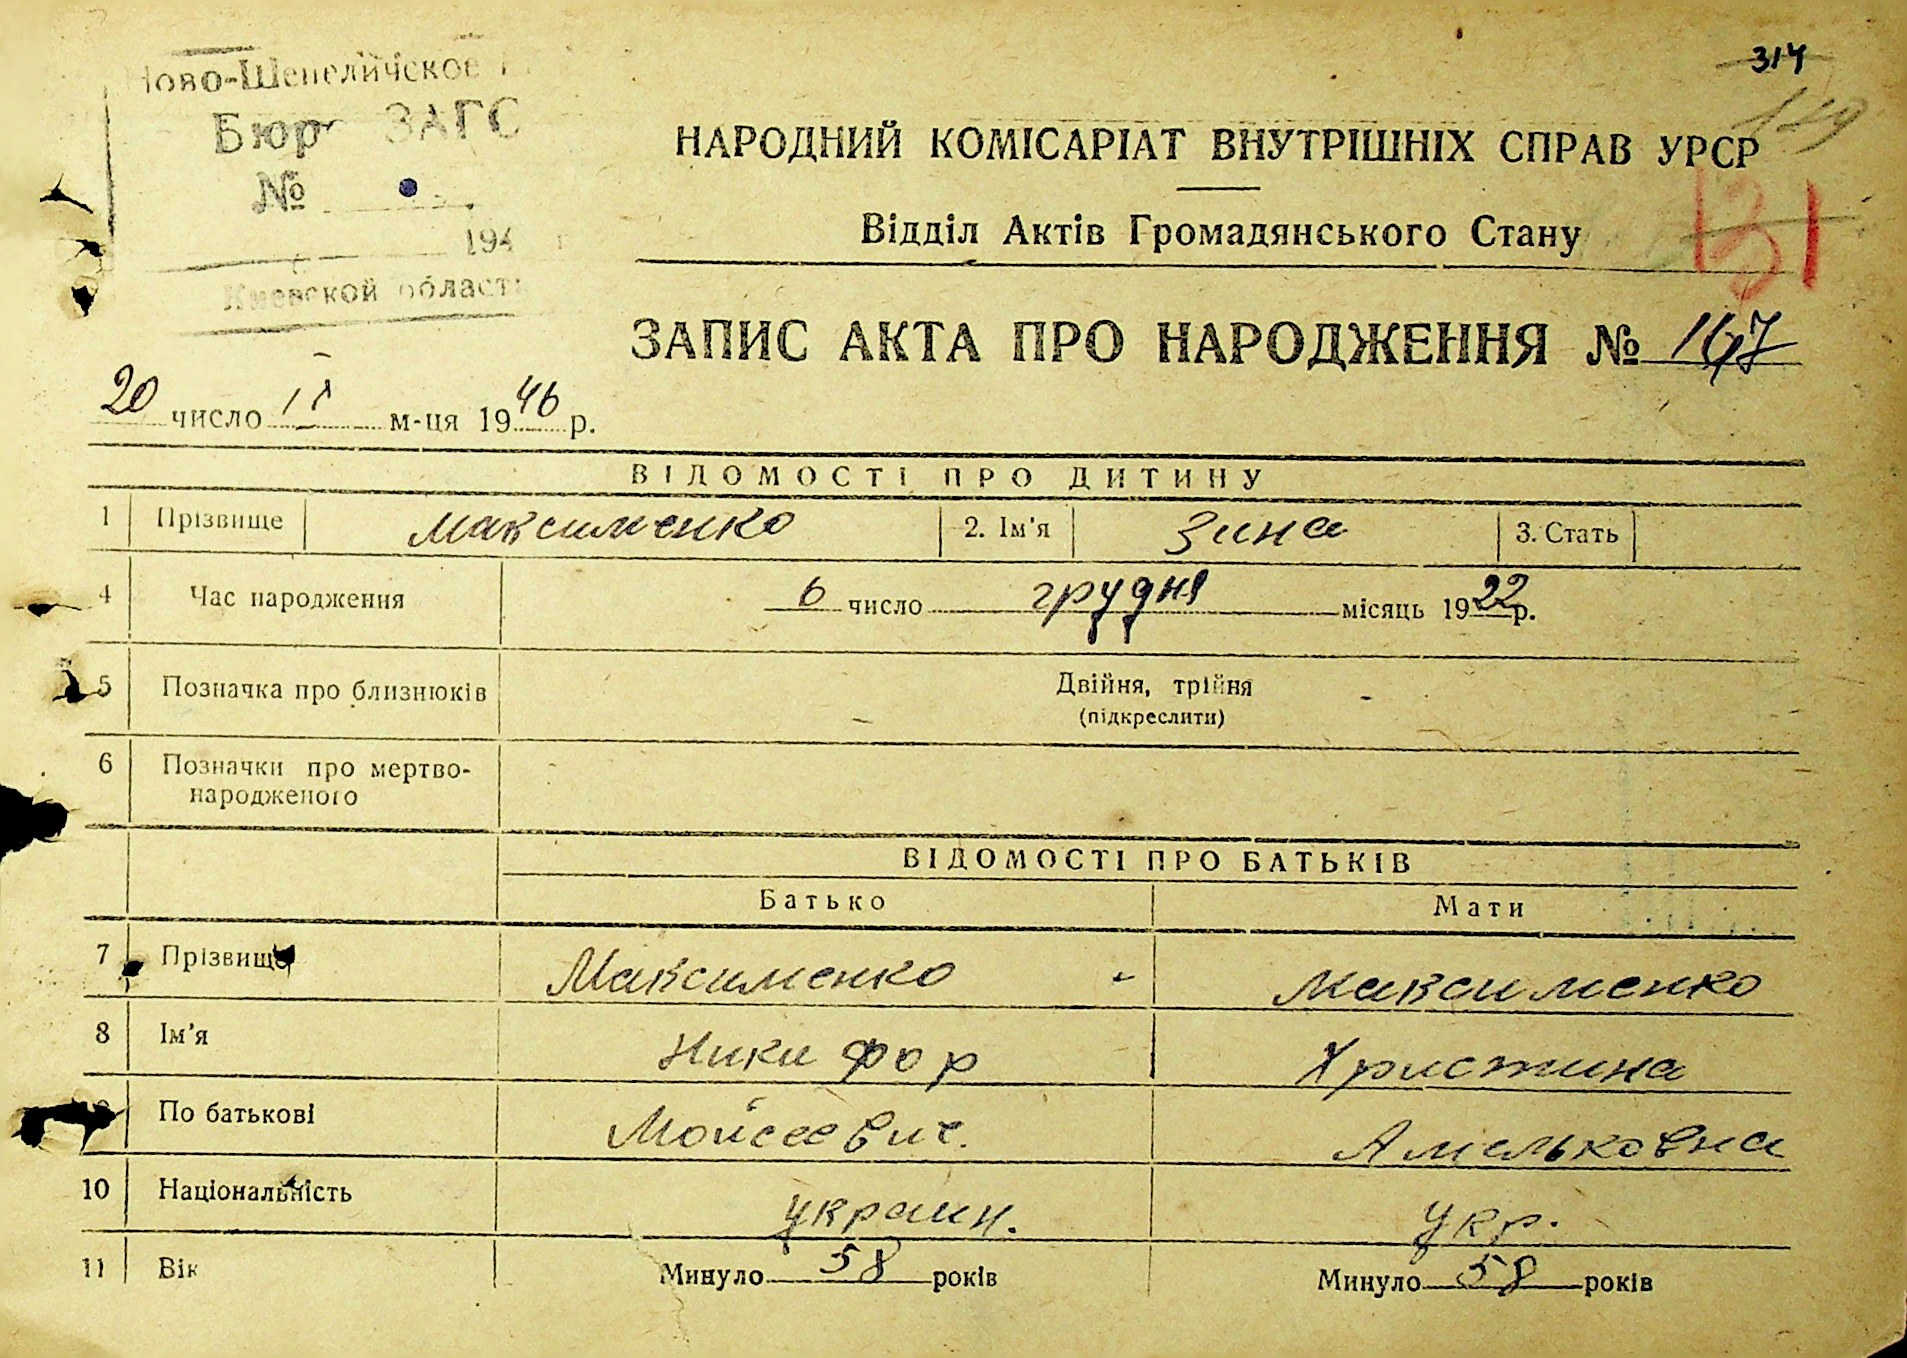 Ново-Шепеличское
Бюро ЗАГС
№
194
Киевской области
314
129
131
НАРОДНИЙ КОМІСАРІАТ ВНУТРІШНІХ СПРАВ УРСР
Відділ Актів Громадянського Стану
ЗАПИС АКТА ПРО НАРОДЖЕННЯ № 167
20 число ІІ м-ця 1946 р.
ВІДОМОСТІ ПРО ДИТИНУ
1 Прізвище Максименко 2. Ім'я Зина 3. Стать
4 Час народження 6 число грудня місяць 1922 р.
5 Позначка про близнюків Двійня, трійня
(підкреслити)
6 Позначки про мертво-
народженого
ВІДОМОСТІ ПРО БАТЬКІВ
Батько Мати
7 Прізвище Максименко Максименко
8 Ім'я Никифор Христина
По батькові Мойсеевич. Амельковна
10 Національність украин. укр.
11 Вік Минуло 58 років Минуло 58 років